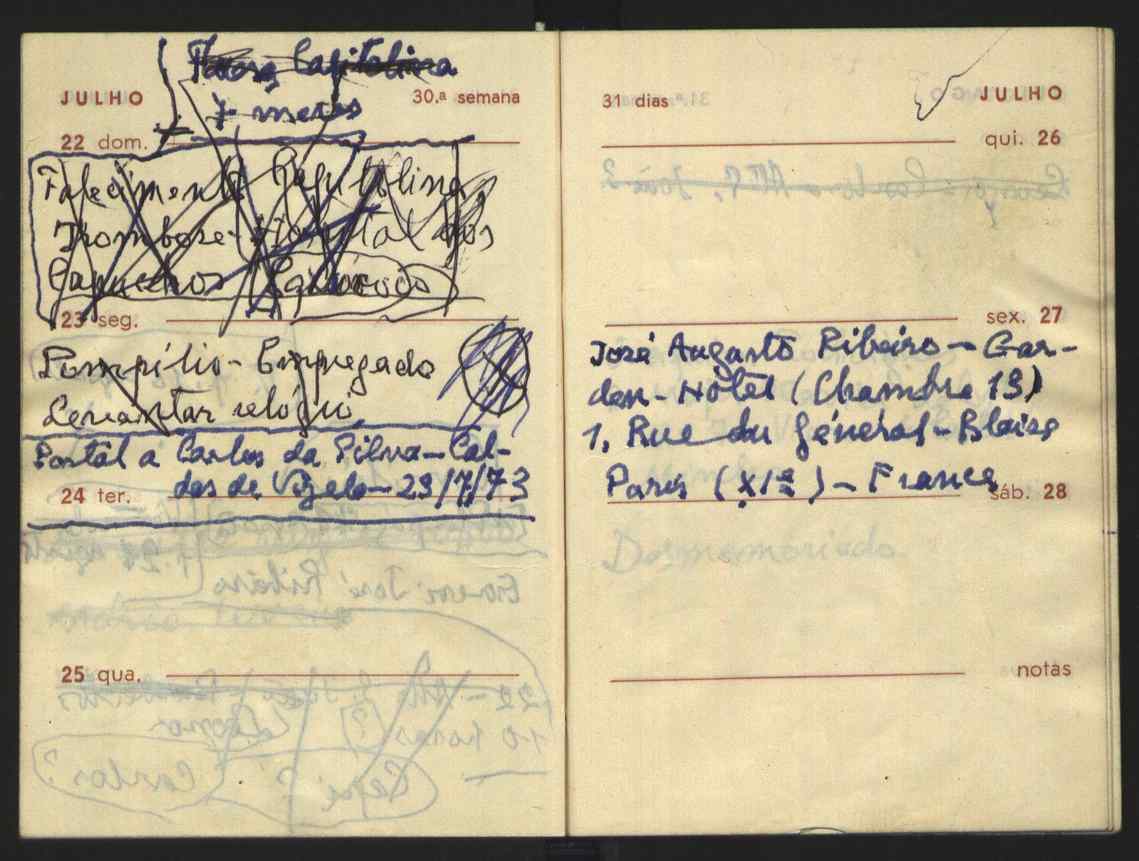 Capitolina
7 meses
JULHO 30.ª semana
22 dom.
Falecimento Capitolina
Trombose - Hospital dos
Capuchos
23 seg.
Pompílio - Empregado
Levantar relógio
Postal a Carlos da Silva - Cal-
24 ter. das de Vizela - 23/7/73
25 qua.
31 dias JULHO
qui. 26
sex. 27
José Augusto Ribeiro - Gar-
den - Hôtel (Chambre 13)
1, Rue du Général - Blaise
Paris (XIe) - France
sáb. 28
Desmemoriado
notas